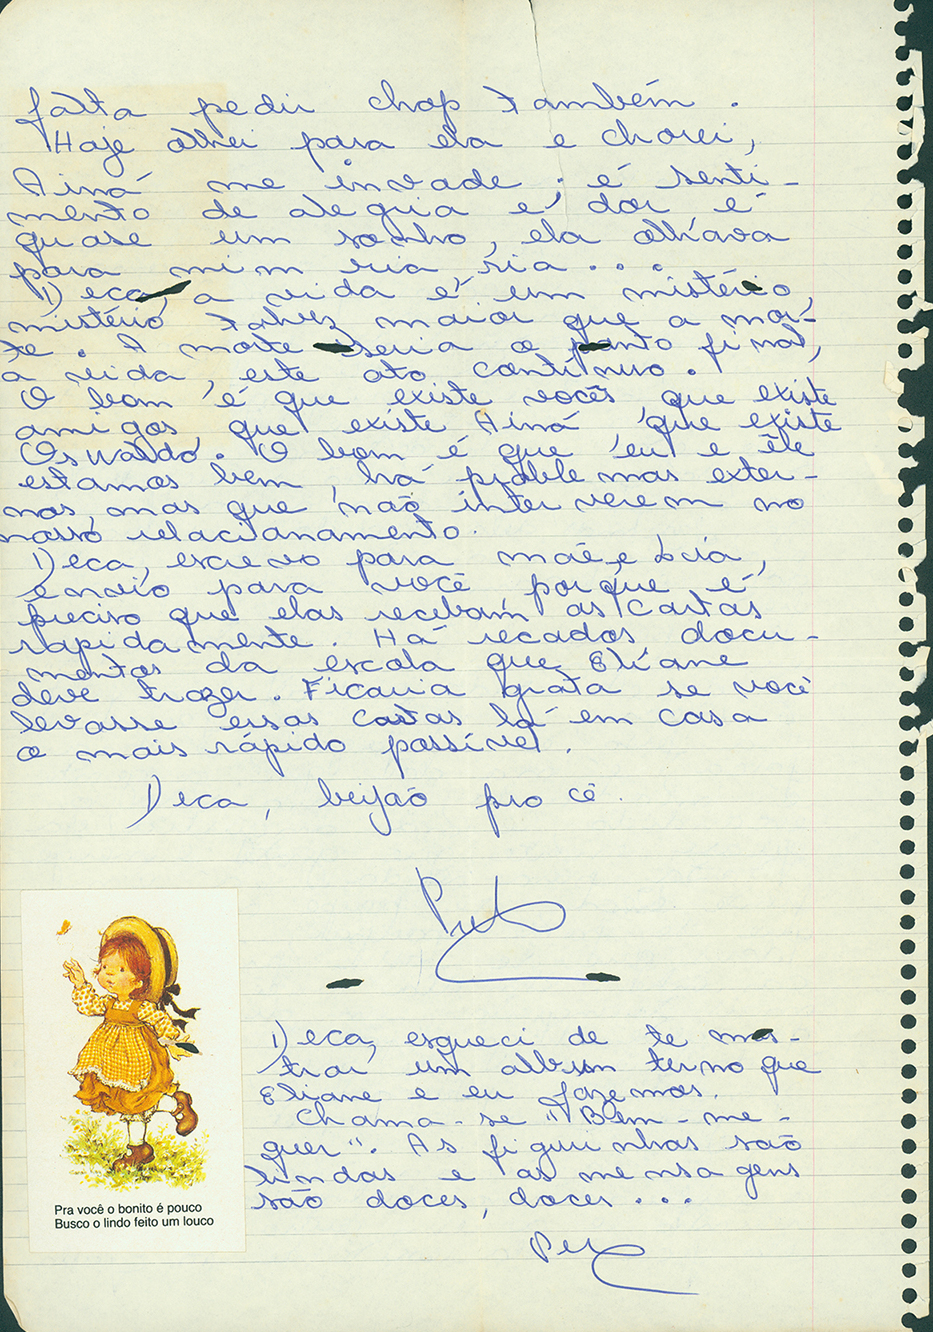 falta pedir chop também.
Hoje olhei para ela e chorei,
Ainá me invade, é senti-
mento de alegria e dor, é
quase um sonho, ela olhava
para mim ria, ria...
Deca, a vida é um mistério,
mistério talvez maior que a mor-
te. A morte seria o ponto final,
a vida, este ato contínuo.
O bom é que existe vocês que existe
amigos, que existe Ainá que existe
Oswaldo. O bom é que eu e êle
estamos bem, há problemas exter-
nos, mas que não interverem no
nosso relacionamento.
Deca, escrevo para mãe e Lia,
envio para você porque é
preciso que elas recebam as cartas
rapidamente. Há recados docu-
mentos da escola que Eliane
deve trazer. Ficaria grata se você
levasse essas cartas lá em casa
o mais rápido possível.
Deca, beijão pro cê.
Deca, esqueci de te mos-
trar um album terno que
Eliane e eu fazemos.
Chama-se "Bem-me-
quer". As figurinhas são
lindas e as mensagens
são doces, doces...
Pra você o bonito é pouco
Busco o lindo feito um louco